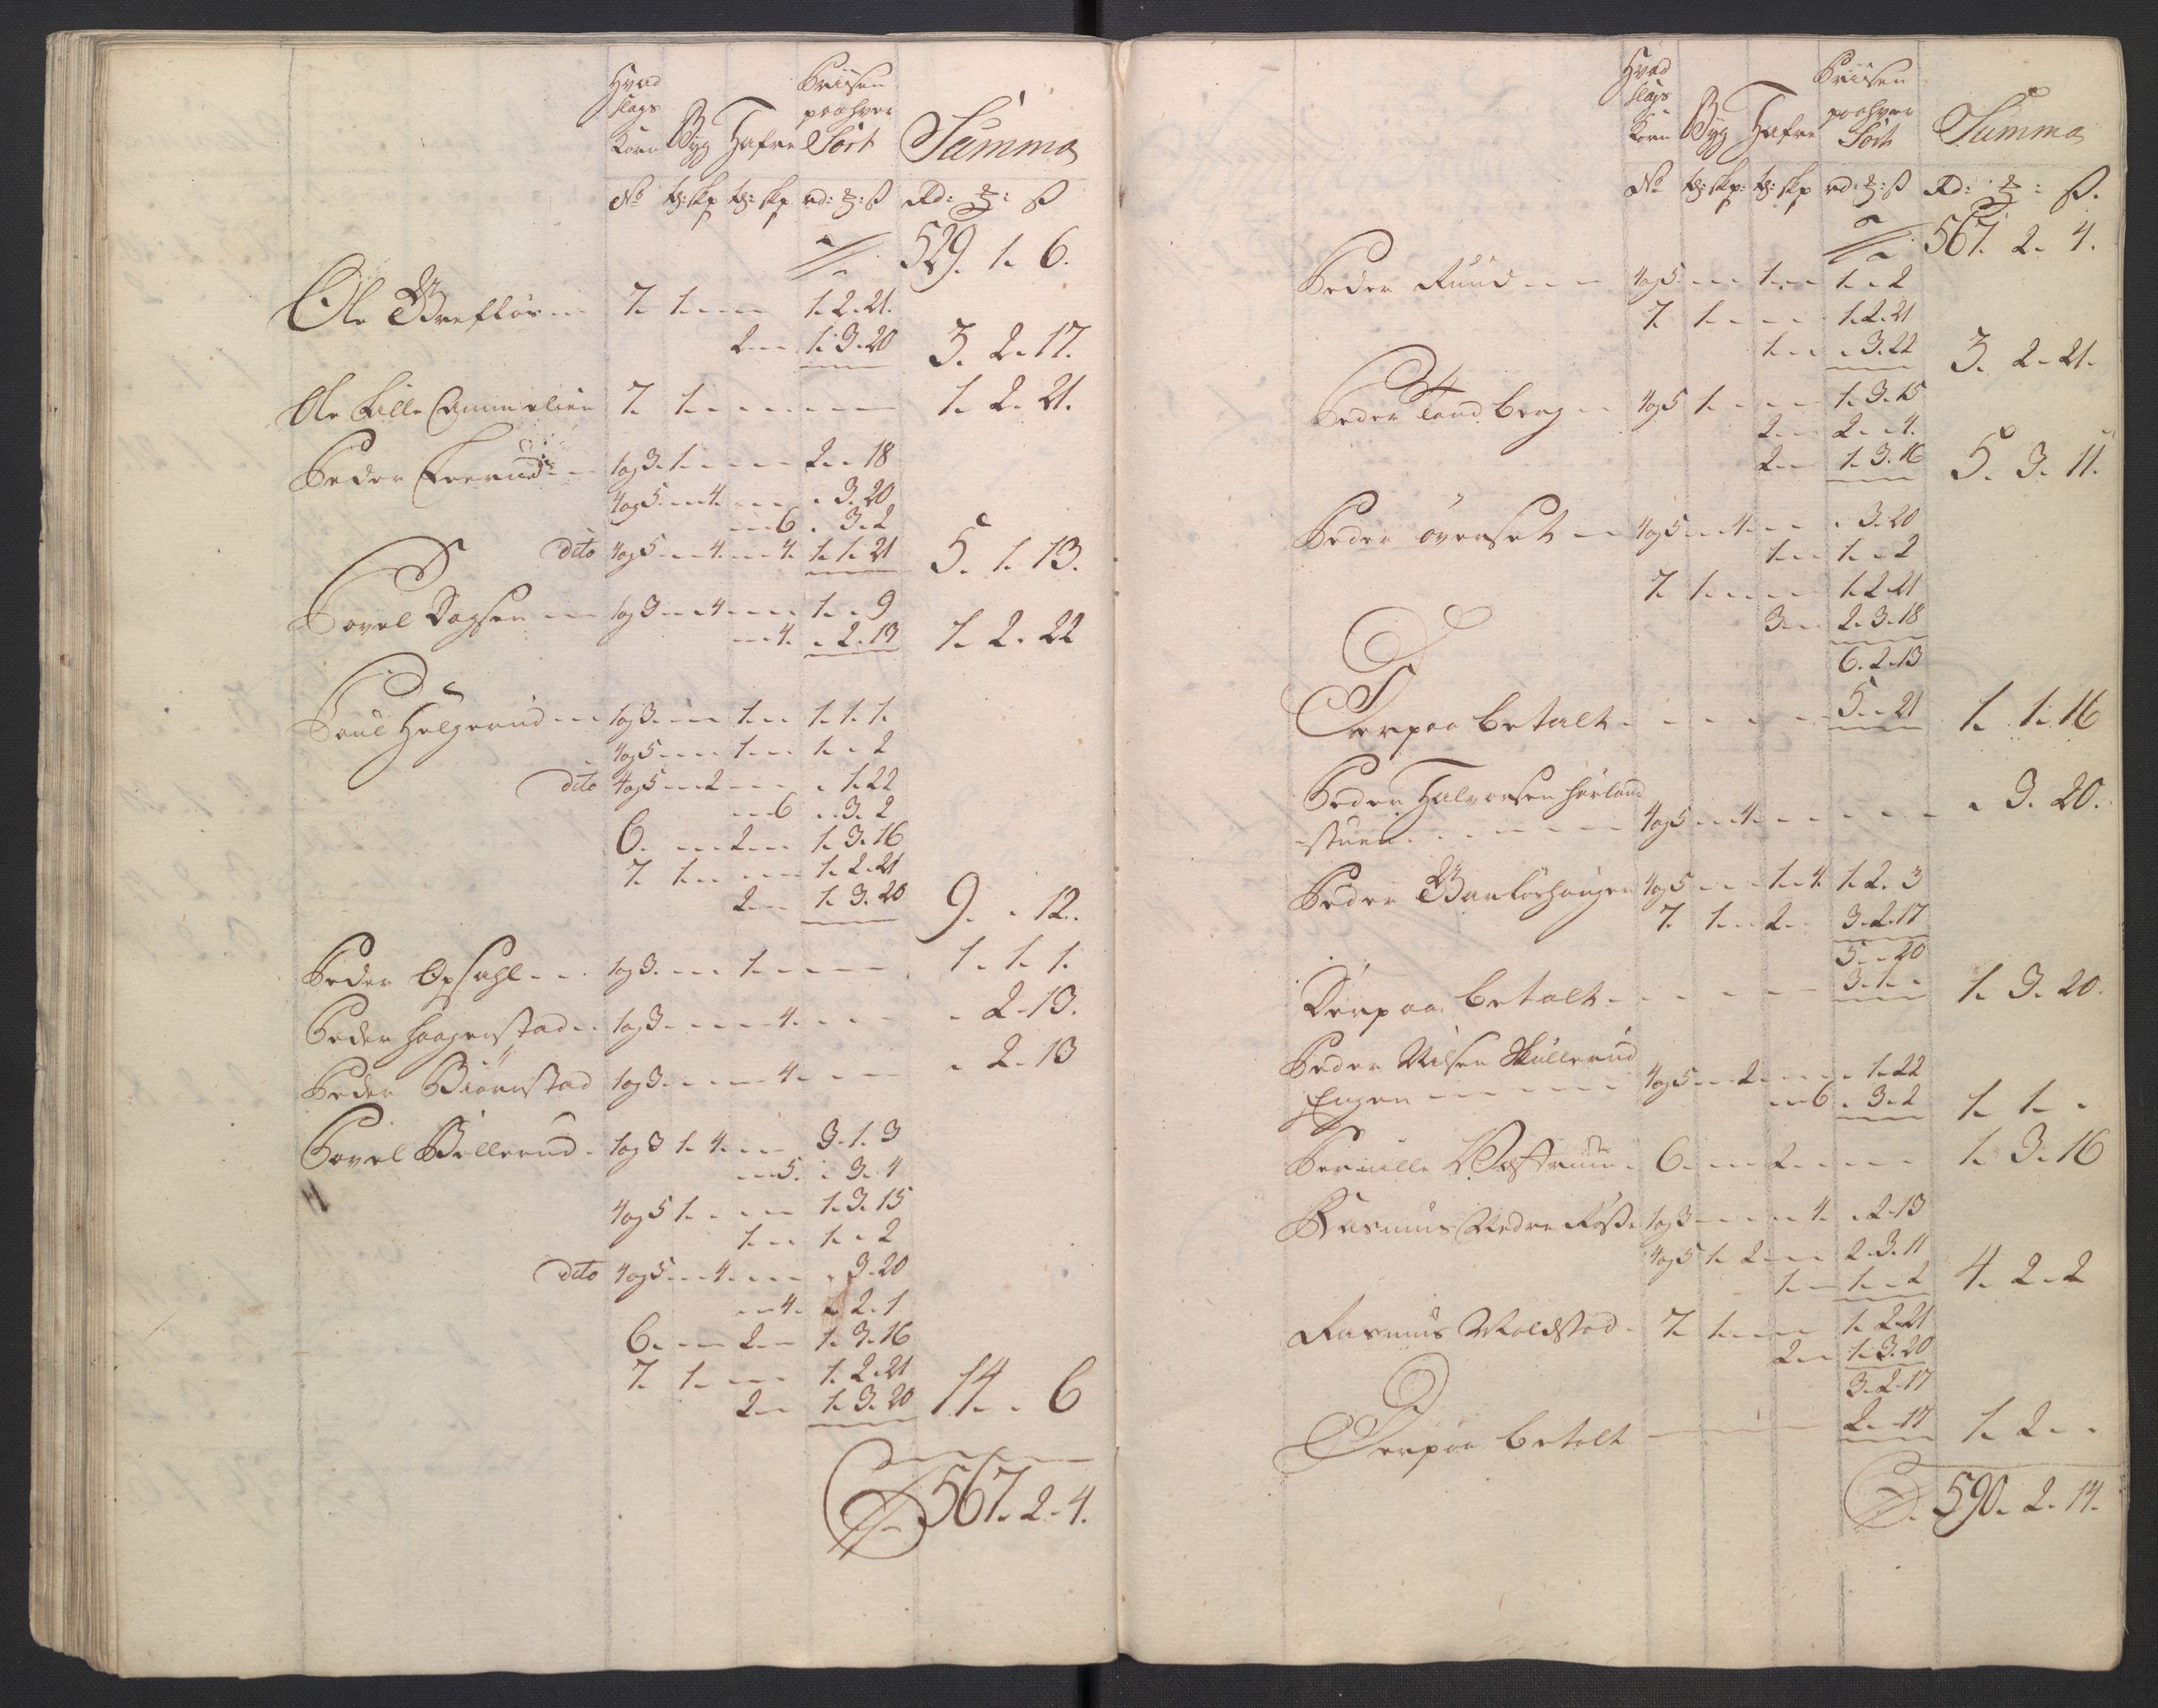 Hvad slags Korn Byg Hafre Priisen paa hver Sort Summa
No tø: skp tø: skp rd: ß Rd: ß
529. 1. 6.
Ole 7. 1. 1. 2. 21.
2. 1. 3. 20 3. 2. 17.
Ole Lille 7. 1. 1. 2. 21.
Peder 1 og 3. 1. 2. - 18
4 og 5. 4. - 3. 20
6. 3. 2
dito 4 og 5 4. 4. 1. 1. 21 5. 1. 13.
Povel Dagsen 1 og 3 4. 1. - 9
4. - 2. 13 1. 2. 22
Poul Helgerud 1 og 3. 1. 1. 1. 1.
4 og 5 1. 1. - 2
dito 4 og 5 2 - 1. 22
6 - 3. 2
6. 2. 1. 3. 16
7. 1. 1. 2. 21
2. 1. 3. 20 9. - 12.
Peder Opsahl 1 og 3. 1. 1. 1. 1.
Peder Haagenstad 1 og 3. 4. - 2. 13.
Peder Biørnstad 1 og 3. 4. - 2. 13
Povel Billerud 1 og 3 1. 4. 3. 1. 3
5. - 3. 4
4 og 5 1. 1. 3. 15
1. 1. - 2
dito 4 og 5. 4. - 3. 20
4. - 2. 1
6. 2. 1. 3. 16
7. 1. 1. 2. 21
2. 1. 3. 20 14. - 6
567. 2. 4.
Hvad slags Korn Byg Hafre Priisen paa hver Sort Summa
No tø: skp: tø: skp rd: ß Rd: ß.
567. 2. 4.
Peder Ruud 4 og 5. 1. 1. - 2
7. 1. 1. 2. 21
1. - 3. 22 3. 2. 21.
Peder Landberg 4 og 5 1. 1. 3. 15
2. 2. - 4.
2. 1. 3. 16 5. 3. 11.
Peder Øverset 4 og 5 4. - 3. 20
1. 1. - 2
7. 1. 1. 2. 21
3. 2. 3. 18
6. 2. 13
Derpaa betalt 5. - 21 1. 1. 16
Peder Halvorsen
stuen 4 og 5 4. - 3. 20.
Peder 4 og 5 1. 4. 1. 2. 3
7. 1. 2. 3. 2. 17
5. - 20
Derpaa betalt 3. 1. - 1. 3. 20.
Peder Nilsen Skullerud
Engen 4 og 5 2. - 1. 22
6. - 3. 2 1. 1. -
Pernille 6. 2. 1. 3. 16
Rasmus Nedre 1 og 3 4. - 2. 13
4 og 5 1. 2. 2. 3. 11
1. 1. - 2 4. 2. 2
Rasmus Moldstad 7. 1. 1. 2. 21
2. 1. 3. 20
3. 2. 17
Derpaa betalt 2. - 17 1. 2. -
590. 2. 14.